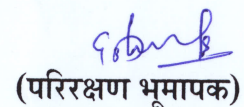 (परिरक्षण भूमापक)